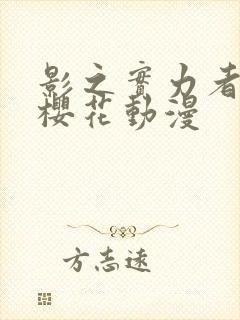 影之實力者
櫻花動漫
方志遠